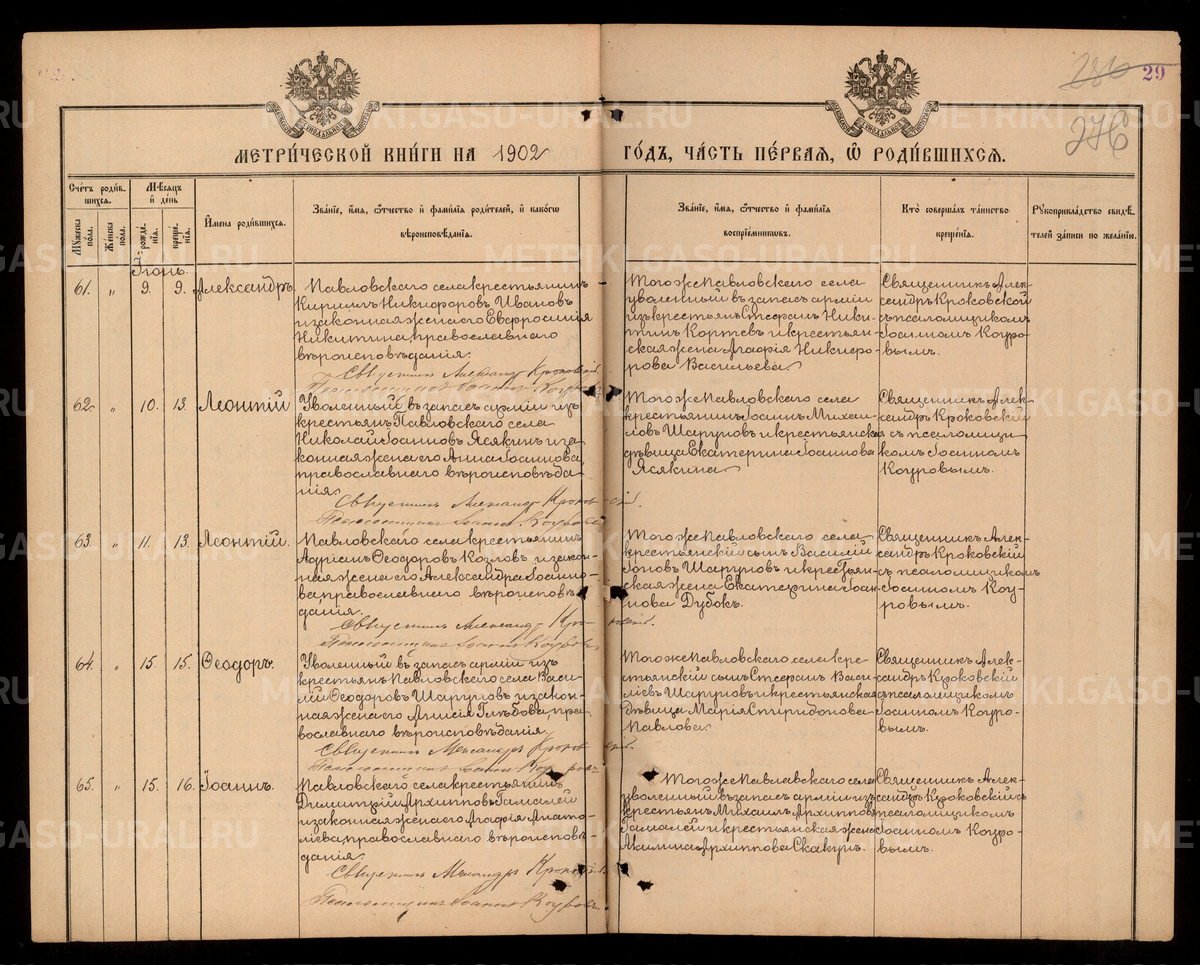 286 29
276
МЕТРИ́ЧЕСКОЙ КНИ́ГИ НА 1902 ГО́ДЪ, ЧА́СТЬ ПЕ́РВАЯ, Ѿ РОДИ́ВШИХСЯ.
Сче́тъ роди́вшихся.
Му́жеска по́ла.
Же́нска по́ла.
Мѣ́сяцъ и де́нь
рожде́нія.
креще́нія.
И́мена роди́вшихся.
Зва́ніе, и́мя, ѻ́тчество и фами́лія роди́телей, и како́гѡ
вѣроисповѣ́данія.
Зва́ніе, и́мя, ѻ́тчество и фами́лія
воспріе́мниковъ.
Кто̀ соверша́лъ та́инство
креще́нія.
Рукоприкла́дство свидѣ́телей за́писи по жела́нію.
Іюнь.
61. „ 9. 9. Александръ.
Павловскаго села крестьянинъ
Кириллъ Никифоровъ Ивановъ
и законная жена его Евфросинія
Никитина, православнаго
вѣроисповѣданія.
Священникъ Александръ Кроковскій
Псаломщикъ Іоаннъ Коуровъ
Того же Павловскаго села
уволенный въ запасъ арміи
изъ крестьянъ Стефанъ Никитинъ Коптевъ и крестьянская жена Агафія Никифорова Васильева
Священникъ Александръ Кроковской
съ псаломщикомъ
Іоанномъ Коуровымъ.
62. „ 10. 13. Леонтій
Уволенный въ запасъ арміи изъ
крестьянъ Павловскаго села
Николай Іоанновъ Ясякинъ и законная жена его Анна Іоаннова,
православнаго вѣроисповѣданія.
Священникъ Александръ Кроковскій.
Псаломщикъ Іоаннъ Коуровъ
Того же Павловскаго села
крестьянинъ Іоаннъ Михаиловъ Шаруповъ и крестьянская
дѣвица Екатерина Іоаннова
Ясякина
Священникъ Александръ Кроковскій
съ псаломщикомъ Іоанномъ
Коуровымъ.
63. „ 11. 13. Леонтій.
Павловскаго села крестьянинъ
Адріанъ Ѳеодоровъ Козловъ и законная жена его Александра Іоаннова, православнаго вѣроисповѣданія.
Священникъ Александръ Кроковскій.
Псаломщикъ Іоаннъ Коуровъ
Того же Павловскаго села
крестьянскій сынъ Василій
Шаруповъ и крестьянская жена Екатерина Іоаннова Дубокъ.
Священникъ Александръ Кроковскій
съ псаломщикомъ
Іоанномъ Коуровымъ.
64. „ 15. 15. Ѳеодоръ.
Уволенный въ запасъ арміи изъ
крестьянъ Павловскаго села Василій Ѳеодоровъ Шаруповъ и законная жена его Анисія Глѣбова, православнаго вѣроисповѣданія.
Священникъ Александръ Кроковскій.
Псаломщикъ Іоаннъ Коуровъ
Того же Павловскаго села крестьянскій сынъ Стефанъ Василіевъ Шаруповъ и крестьянская
дѣвица Марія Спиридонова
Павлова.
Священникъ Александръ Кроковскій
съ псаломщикомъ
Іоанномъ Коуровымъ.
65. „ 15. 16. Іоаннъ.
Павловскаго села крестьянинъ
Димитрій Архипповъ Гамалей
и законная жена его Агафія Анатоліева, православнаго вѣроисповѣданія.
Священникъ Александръ Кроковскій.
Псаломщикъ Іоаннъ Коуровъ
Того же Павлавскаго села
уволенный въ запасъ арміи изъ
крестьянъ Михаилъ Архипповъ
Гамалей и крестьянская жена
Акилина Архиппова Скакунъ.
Священникъ Александръ Кроковскій съ
псаломщикомъ
Іоанномъ Коуровымъ.
METRIKI.GASO-URAL.RU